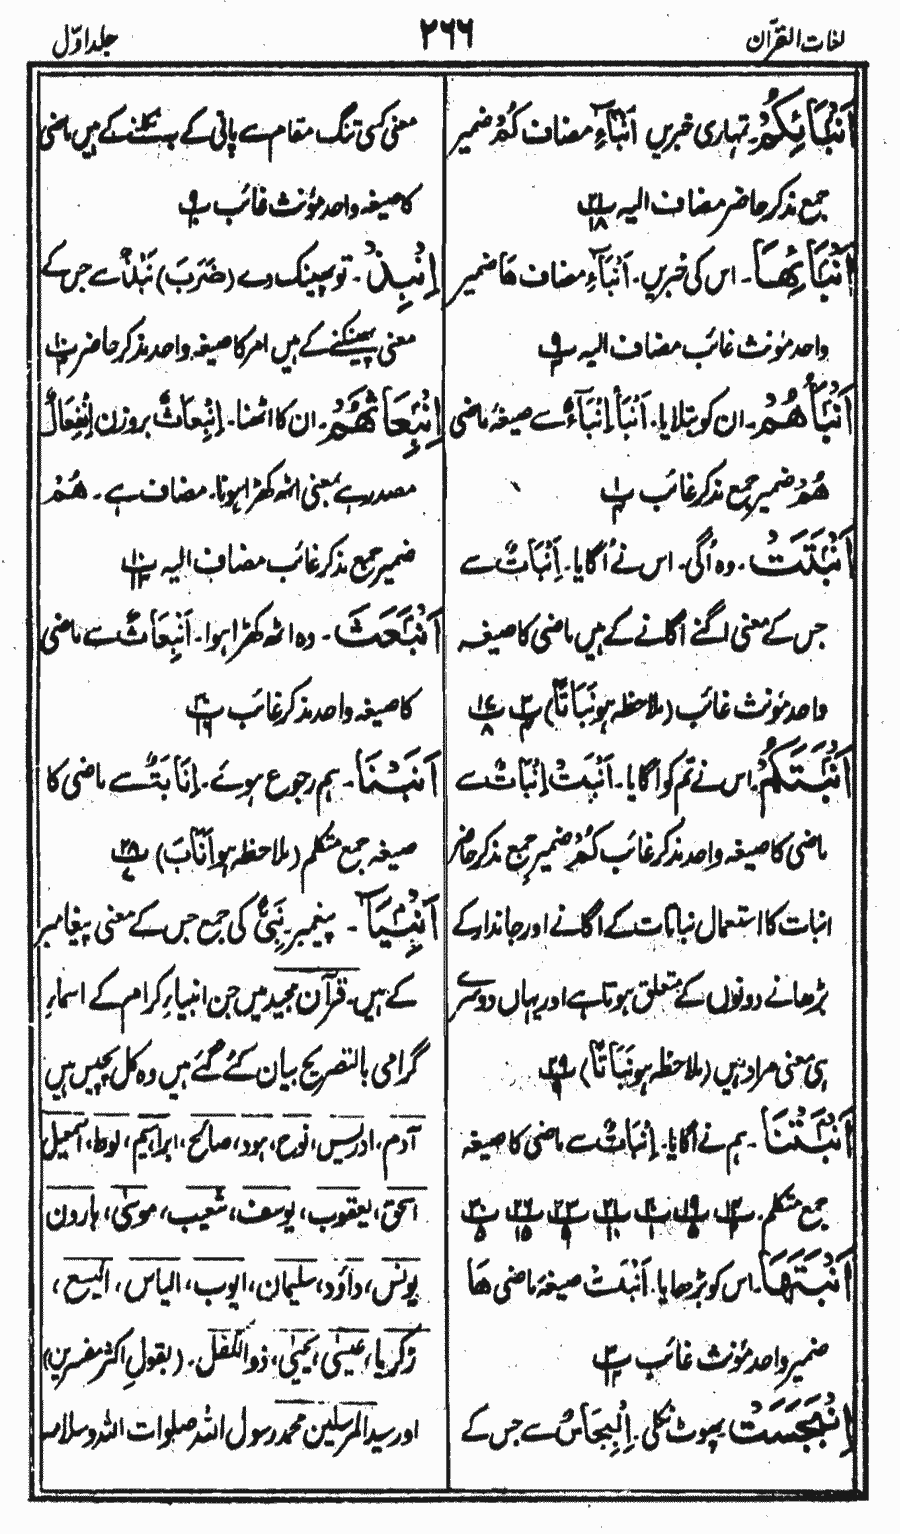 لغات القرآن
۲۶۶
جلد اوّل
اَنْبَآئِكُمْ۔ تمہاری خبریں اَنْبَآءِ مضاف كُمْ ضمیر
جمع مذکر حاضر مضاف الیہ ۲۱/۱۸
اَنْبَآئِهَا۔ اس کی خبریں۔ اَنْبَآءِ مضاف هَا ضمیر
واحد مؤنث غائب مضاف الیہ ۹
اَنْبَاَهُمْ۔ ان کو بتلایا۔ اَنْبَاَ اِنْبَآءٌ سے صیغۂ ماضی
هُمْ ضمیر جمع مذکر غائب ۱
اَنْبَتَتْ۔ وہ اُگی۔ اس نے اُگایا۔ اِنْبَاتٌ سے
جس کے معنی اگنے اگانے کے ہیں ماضی کا صیغہ
واحد مؤنث غائب (ملاحظہ ہو نَبَاتًا) ۳ ۱۷/۸
اَنْبَتَكُمْ۔ اس نے تم کو اگایا۔ اَنْبَتَ اِنْبَاتٌ سے
ماضی کا صیغہ واحد مذکر غائب كُمْ ضمیر جمع مذکر حاضر
انبات کا استعمال نباتات کے اگانے اور جاندار کے
بڑھانے دونوں کے متعلق ہوتا ہے اور یہاں دوسرے
ہی معنی مراد ہیں (ملاحظہ ہو نَبَاتًا) ۲۹/۹
اَنْبَتْنَا۔ ہم نے اگایا۔ اِنْبَاتٌ سے ماضی کا صیغہ
جمع متکلم۔ ۱۴/۲ ۱۹/۵ ۲۰/۱ ۲۱/۱۰ ۲۳ ۲۶/۱۵ ۳۰/۵
اَنْبَتَهَا۔ اس کو بڑھایا۔ اَنْبَتَ صیغۂ ماضی هَا
ضمیر واحد مؤنث غائب ۳/۱۲
اِنْبَجَسَتْ۔ پھوٹ نکلی۔ اِنْبِجَاسٌ سے جس کے
معنی کسی تنگ مقام سے پانی کے بہ نکلنے کے ہیں ماضی
کا صیغہ واحد مؤنث غائب ۹/۱۰
اِنْبِذْ۔ تو پھینک دے (ضَرَبَ) نَبْذٌ سے جس کے
معنی پھینکنے کے ہیں امر کا صیغہ واحد مذکر حاضر ۱۰/۳
اِنْۢبِعَاثَهُمْ۔ ان کا اٹھنا۔ اِنْبِعَاثٌ بروزن اِنْفِعَالٌ
مصدر ہے بمعنی اٹھ کھڑا ہونا۔ مضاف ہے۔ هُمْ
ضمیر جمع مذکر غائب مضاف الیہ ۱۰/۱۳
اَنْبَعَثَ۔ وہ اٹھ کھڑا ہوا۔ اَنْبِعَاثٌ سے ماضی
کا صیغہ واحد مذکر غائب ۳۰/۱۶
اَنَبْنَا۔ ہم رجوع ہوئے۔ اِنَابَتٌ سے ماضی کا
صیغہ جمع متکلم (ملاحظہ ہو اَنَابَ) ۲۸/۷
اَنْبِيَآءَ۔ پیغمبر۔ نَبِیٌّ کی جمع جس کے معنی پیغامبر
کے ہیں۔ قرآن مجید میں جن انبیاء کرام کے اسماء
گرامی بالتصریح بیان کئے گئے ہیں وہ کل پچیس ہیں
آدم، ادریس، نوح، ہود، صالح، ابراہیم، لوط، اسمٰعیل
اسحٰق، یعقوب، یوسف، شعیب، موسیٰ، ہارون
یونس، داؤد، سلیمان، ایوب، الیاس، الیسع،
زکریا، عیسیٰ، یحییٰ، ذوالکفل۔ (بقول اکثر مفسرین)
اور سید المرسلین محمد رسول اللہ صلوات اللہ وسلامہ